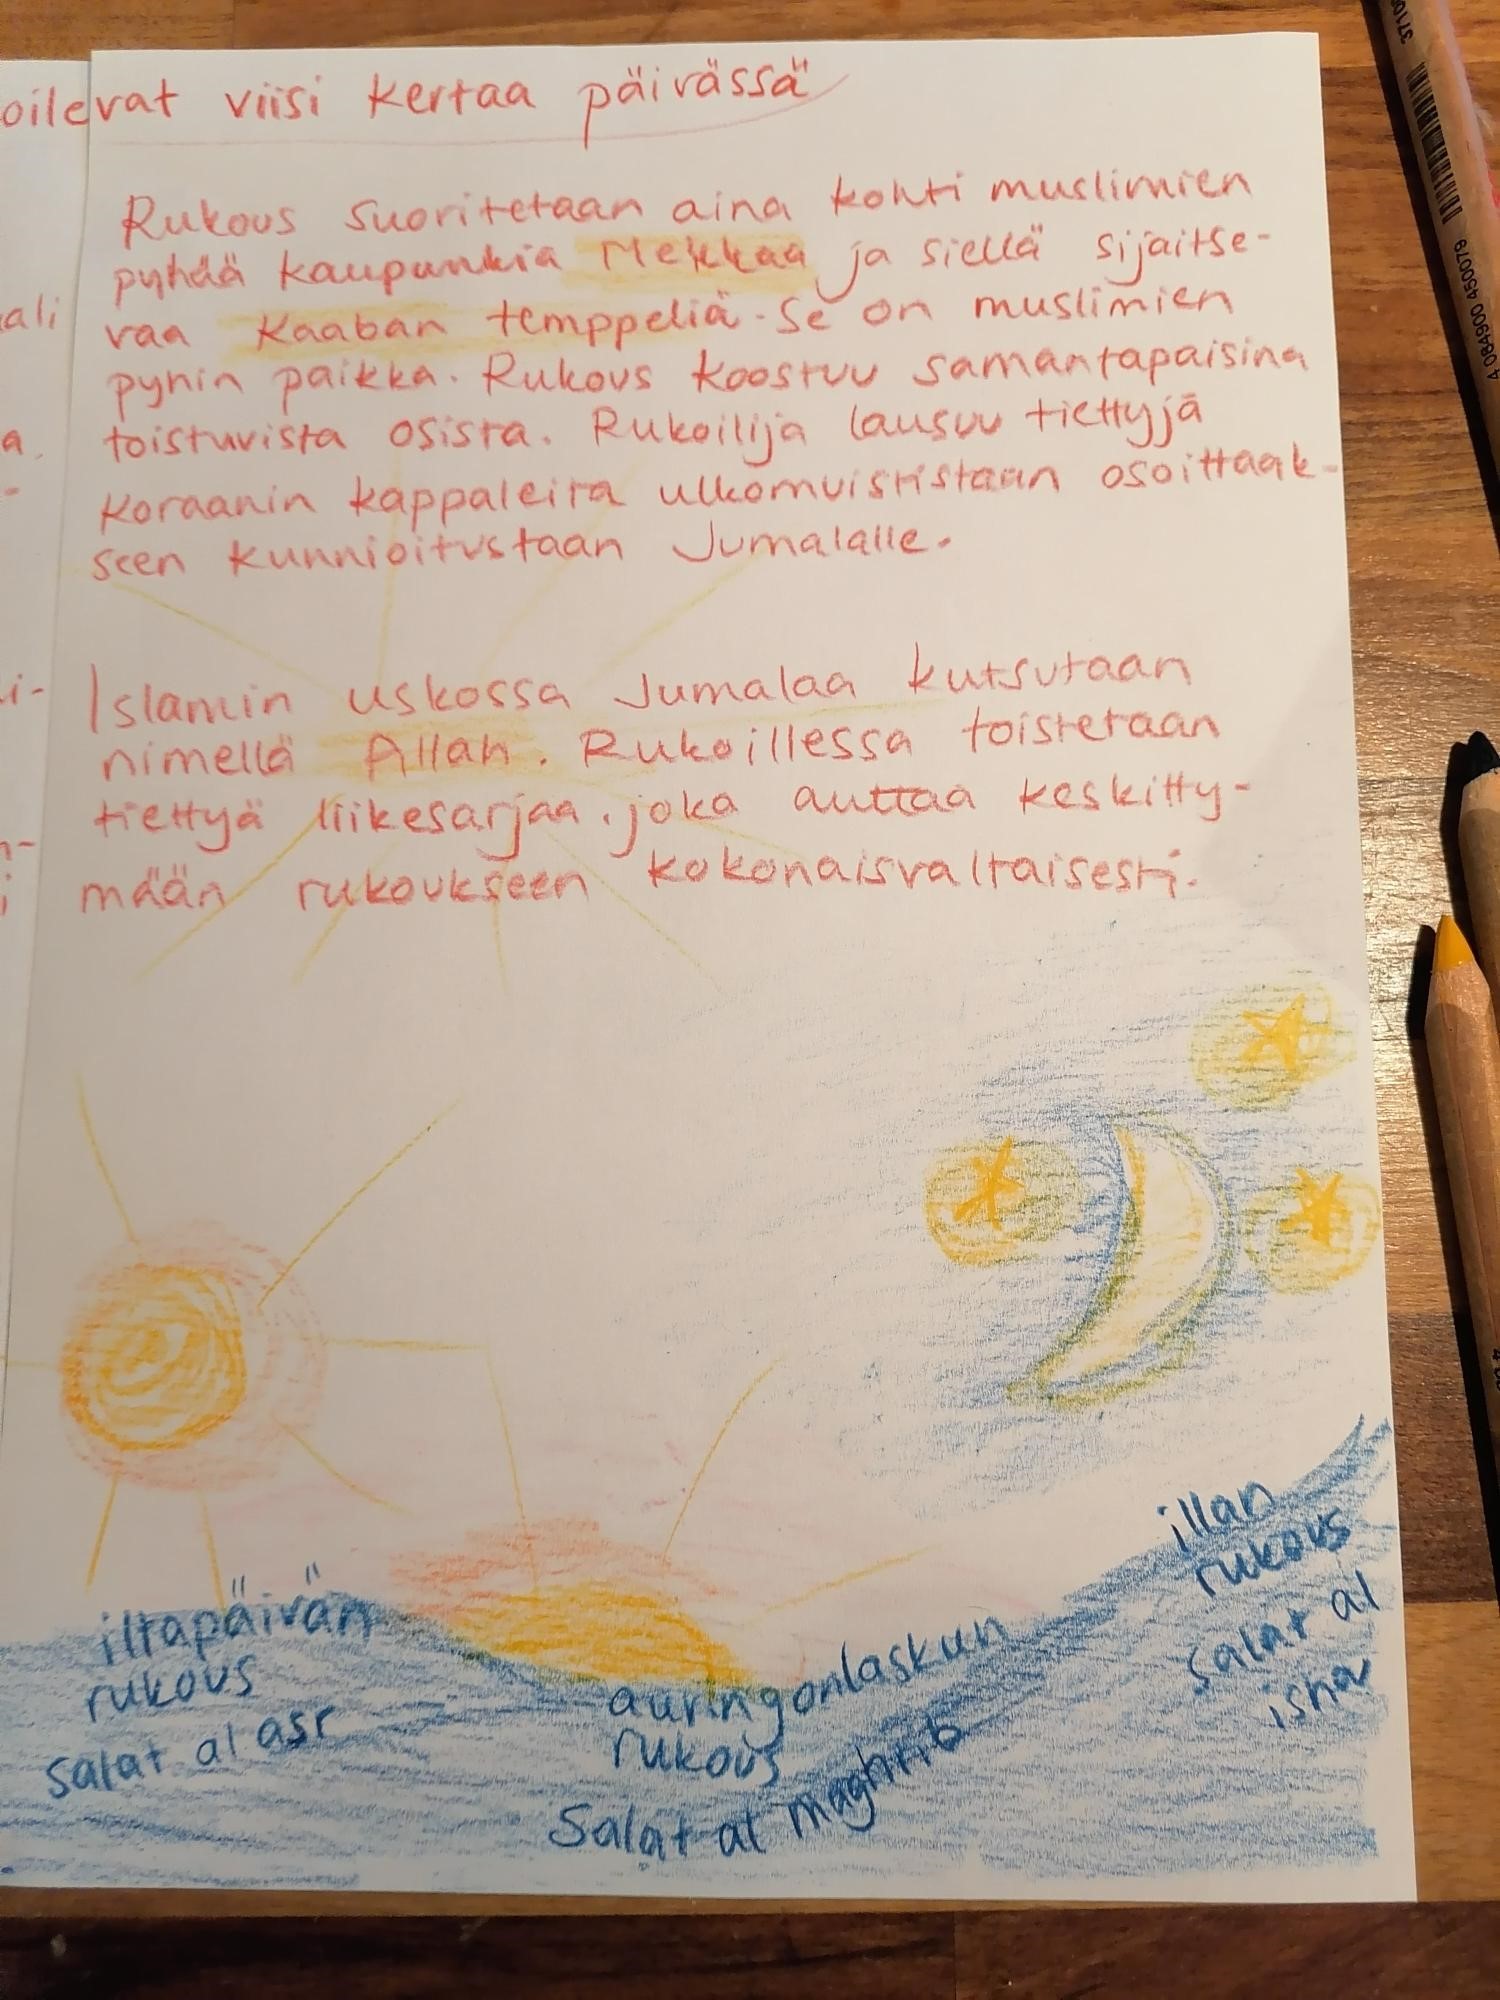 oilevat viisi kertaa päivässä
Rukous suoritetaan aina kohti muslimien
pyhää kaupunkia Mekkaa ja siellä sijaitse-
vaa Kaaban temppeliä. Se on muslimien
pyhin paikka. Rukous koostuu samantapaisina
toistuvista osista. Rukoilija lausuu tiettyjä
Koraanin kappaleita ulkomuististaan osoittaak-
seen kunnioitustaan Jumalalle.
Islamin uskossa Jumalaa kutsutaan
nimellä Allah. Rukoillessa toistetaan
tiettyä liikesarjaa, joka auttaa keskitty-
mään rukoukseen kokonaisvaltaisesti.
iltapäivän
rukous
Salat al asr
auringonlaskun
rukous
Salat al maghrib
illan
rukous
Salat al
isha
ali
a.
-
i-
n-
i
4 084900 450079